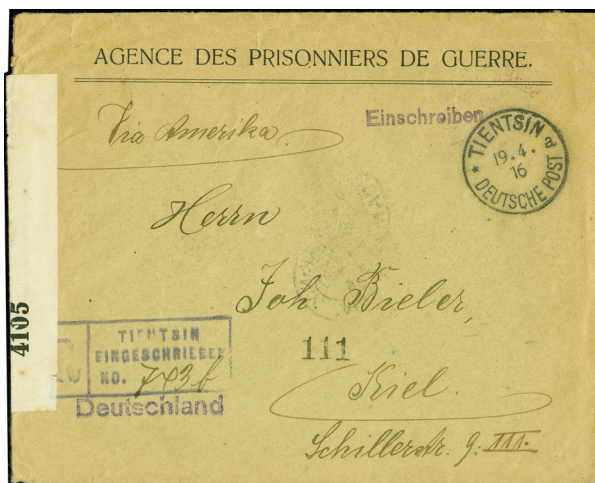 AGENCE DES PRISONNIERS DE GUERRE.
Via Amerika.
Einschreiben
TIENTSIN d
19.4.
16
DEUTSCHE POST
Herrn
Joh. Bieler,
111
Kiel.
Schillerstr. 9. III.
4105
TIENTSIN
EINGESCHRIEBEN
NO. 743b
Deutschland